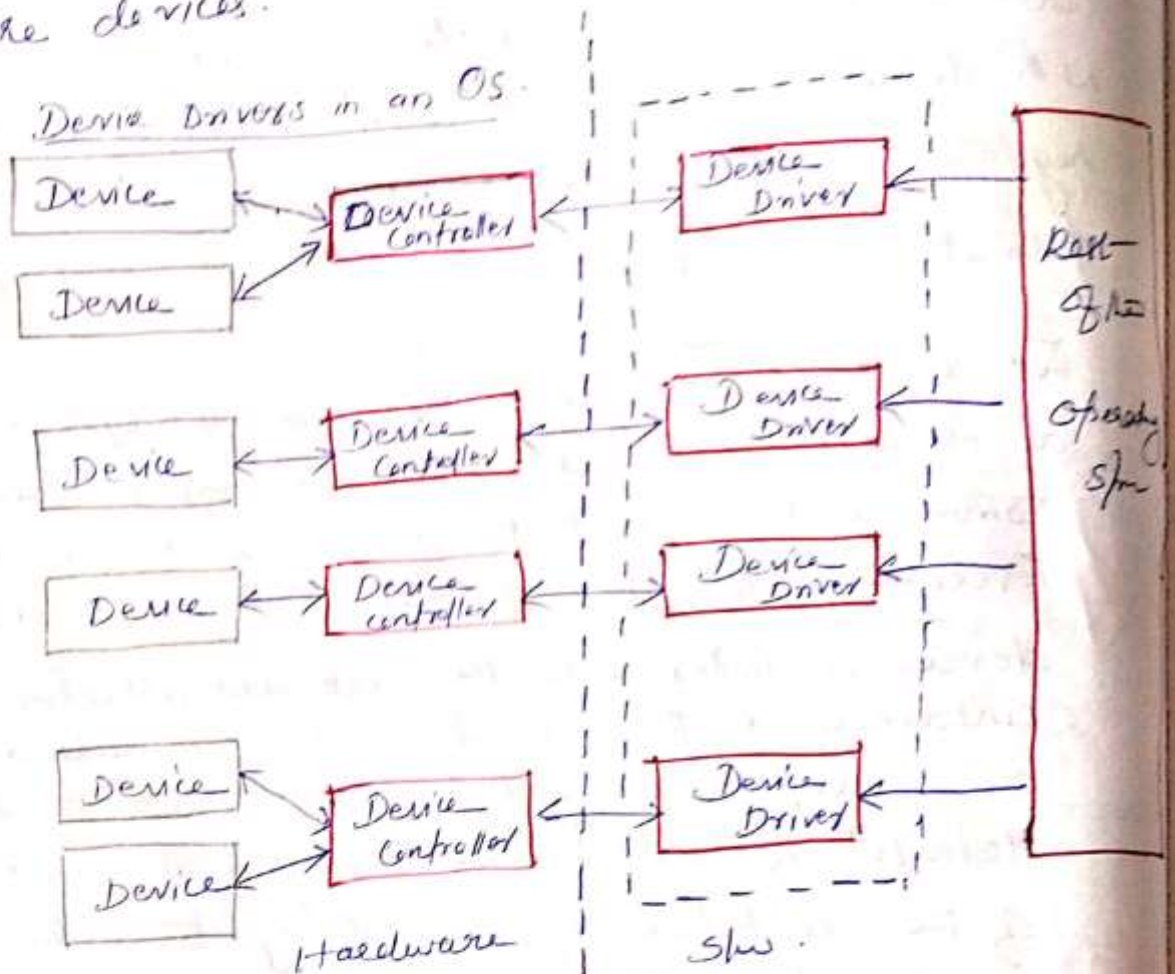 re devices.
Device Drivers in an OS.
Device
Device
Device
Controller
Device
Driver
Device
Device
Controller
Device
Driver
Device
Device
Controller
Device
Driver
Device
Device
Device
Controller
Device
Driver
Rest
Of the
Operating
S/m
Hardware
S/w.